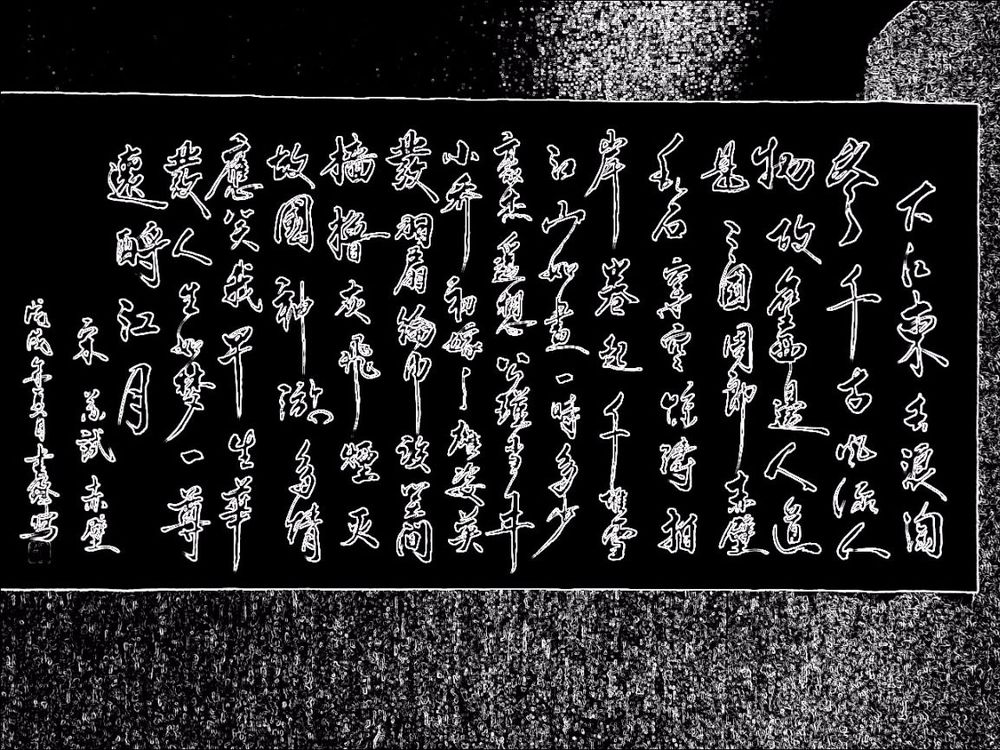 大江東去浪淘
盡千古風流人
物故壘西邊人道
是三國周郎赤壁
亂石穿空惊濤拍
岸卷起千堆雪
江山如畫一時多少
豪杰遥想公瑾當年
小乔初嫁了雄姿英
發羽扇綸巾談笑間
檣櫓灰飛煙灭
故國神游多情
應笑我早生華
髮人生如夢一尊
還酹江月
宋苏軾赤壁
戊戌年夏月